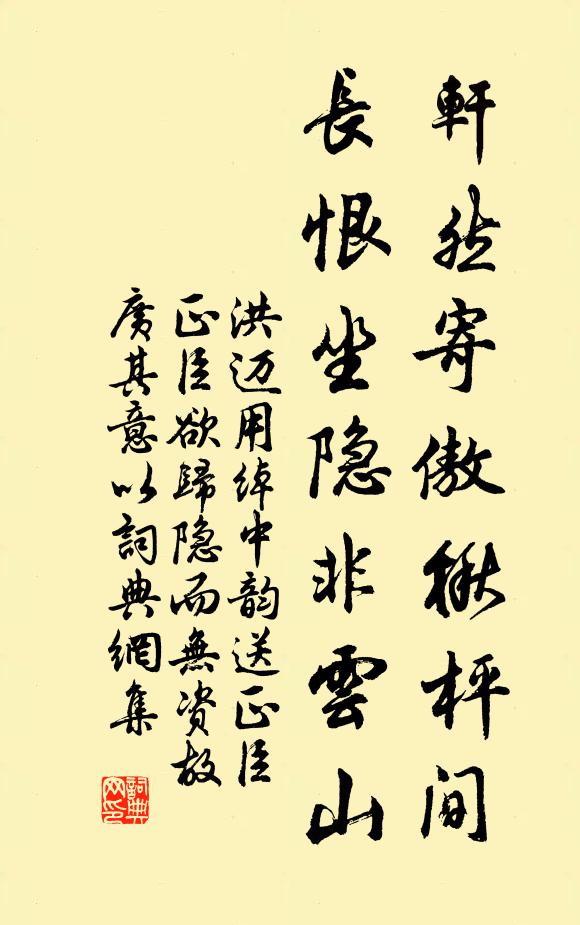 軒然寄傲楸枰间
長恨坐隐非雲山
洪迈用绰中韵送正臣
正臣欲歸隐而無资故
廣其意以詞典網集
詞典网印